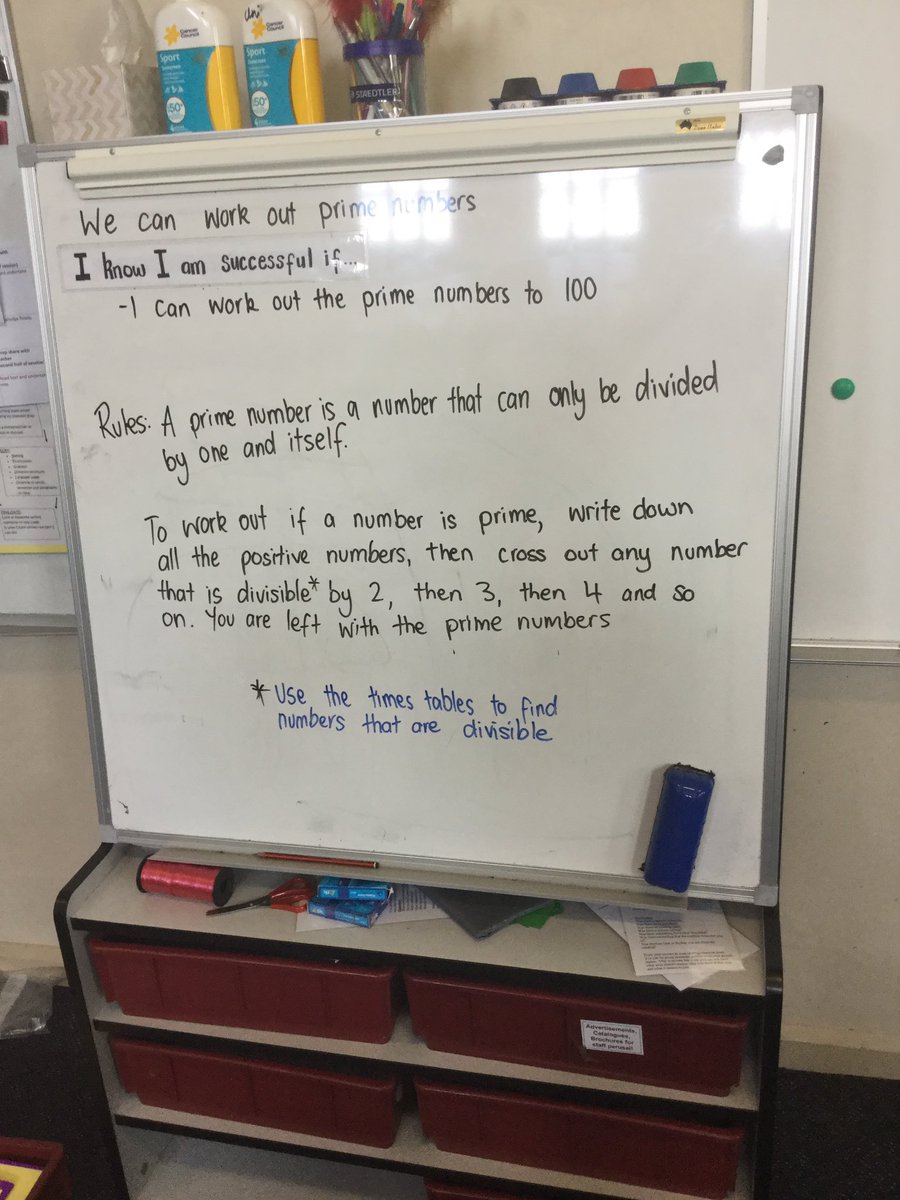 Cancer
Council
Sport
50+
Cancer
Council
Sport
50+
STAEDTLER
We can work out prime numbers
I know I am successful if...
-I can work out the prime numbers to 100
Rules: A prime number is a number that can only be divided
by one and itself.
To work out if a number is prime, write down
all the positive numbers, then cross out any number
that is divisible* by 2, then 3, then 4 and so
on. You are left with the prime numbers
* Use the times tables to find
numbers that are divisible
Advertisements,
Catalogues,
Brochures for
staff perusal!